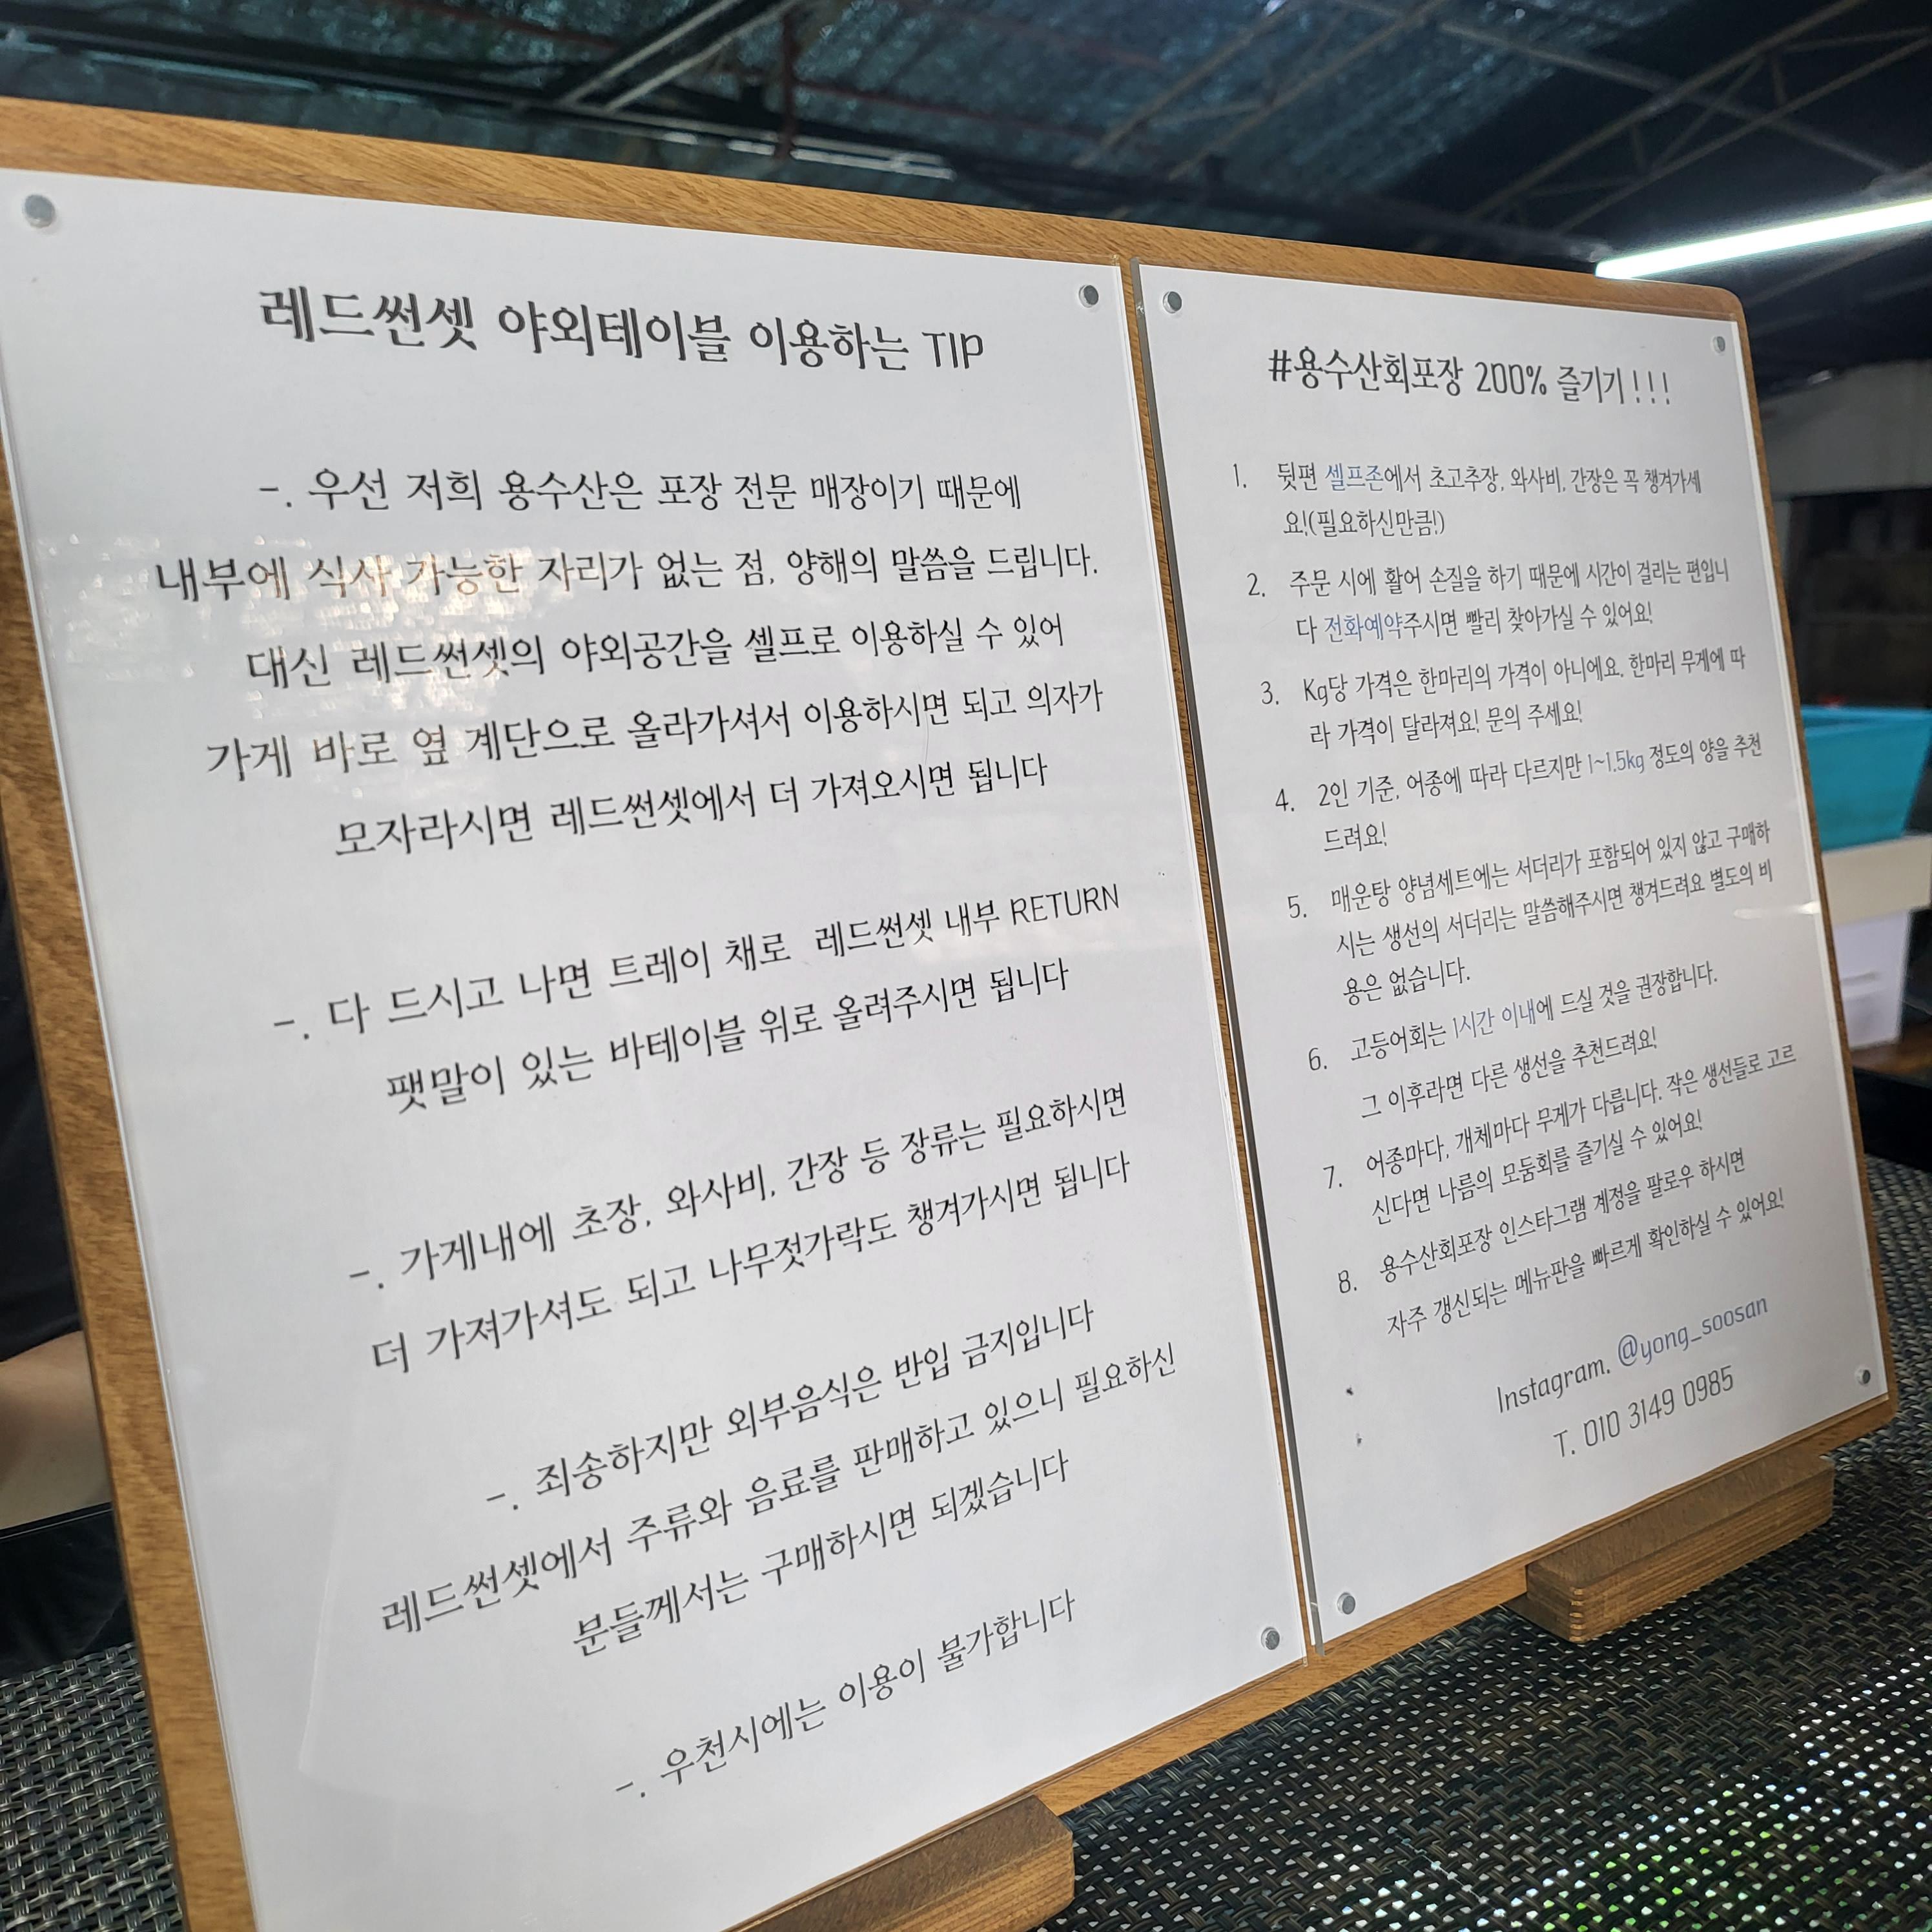 레드썬셋 야외테이블 이용하는 TIP
-. 우선 저희 용수산은 포장 전문 매장이기 때문에
내부에 식사 가능한 자리가 없는 점, 양해의 말씀을 드립니다.
대신 레드썬셋의 야외공간을 셀프로 이용하실 수 있어
가게 바로 옆 계단으로 올라가셔서 이용하시면 되고 의자가
모자라시면 레드썬셋에서 더 가져오시면 됩니다
-. 다 드시고 나면 트레이 채로 레드썬셋 내부 RETURN
팻말이 있는 바테이블 위로 올려주시면 됩니다
-. 가게내에 초장, 와사비, 간장 등 장류는 필요하시면
더 가져가셔도 되고 나무젓가락도 챙겨가시면 됩니다
-. 죄송하지만 외부음식은 반입 금지입니다
레드썬셋에서 주류와 음료를 판매하고 있으니 필요하신
분들께서는 구매하시면 되겠습니다
-. 우천시에는 이용이 불가합니다
#용수산회포장 200% 즐기기!!!
1. 뒷편 셀프존에서 초고추장, 와사비, 간장은 꼭 챙겨가세
요!(필요하신만큼!)
2. 주문 시에 활어 손질을 하기 때문에 시간이 걸리는 편입니
다 전화예약주시면 빨리 찾아가실 수 있어요!
3. Kg당 가격은 한마리의 가격이 아니에요. 한마리 무게에 따
라 가격이 달라져요! 문의 주세요!
4. 2인 기준, 어종에 따라 다르지만 1~1.5kg 정도의 양을 추천
드려요!
5. 매운탕 양념세트에는 서더리가 포함되어 있지 않고 구매하
시는 생선의 서더리는 말씀해주시면 챙겨드려요 별도의 비
용은 없습니다.
6. 고등어회는 1시간 이내에 드실 것을 권장합니다.
그 이후라면 다른 생선을 추천드려요!
7. 어종마다, 개체마다 무게가 다릅니다. 작은 생선들로 고르
신다면 나름의 모둠회를 즐기실 수 있어요!
8. 용수산회포장 인스타그램 계정을 팔로우 하시면
자주 갱신되는 메뉴판을 빠르게 확인하실 수 있어요!
Instagram. @yong_soosan
T. 010 3149 0985